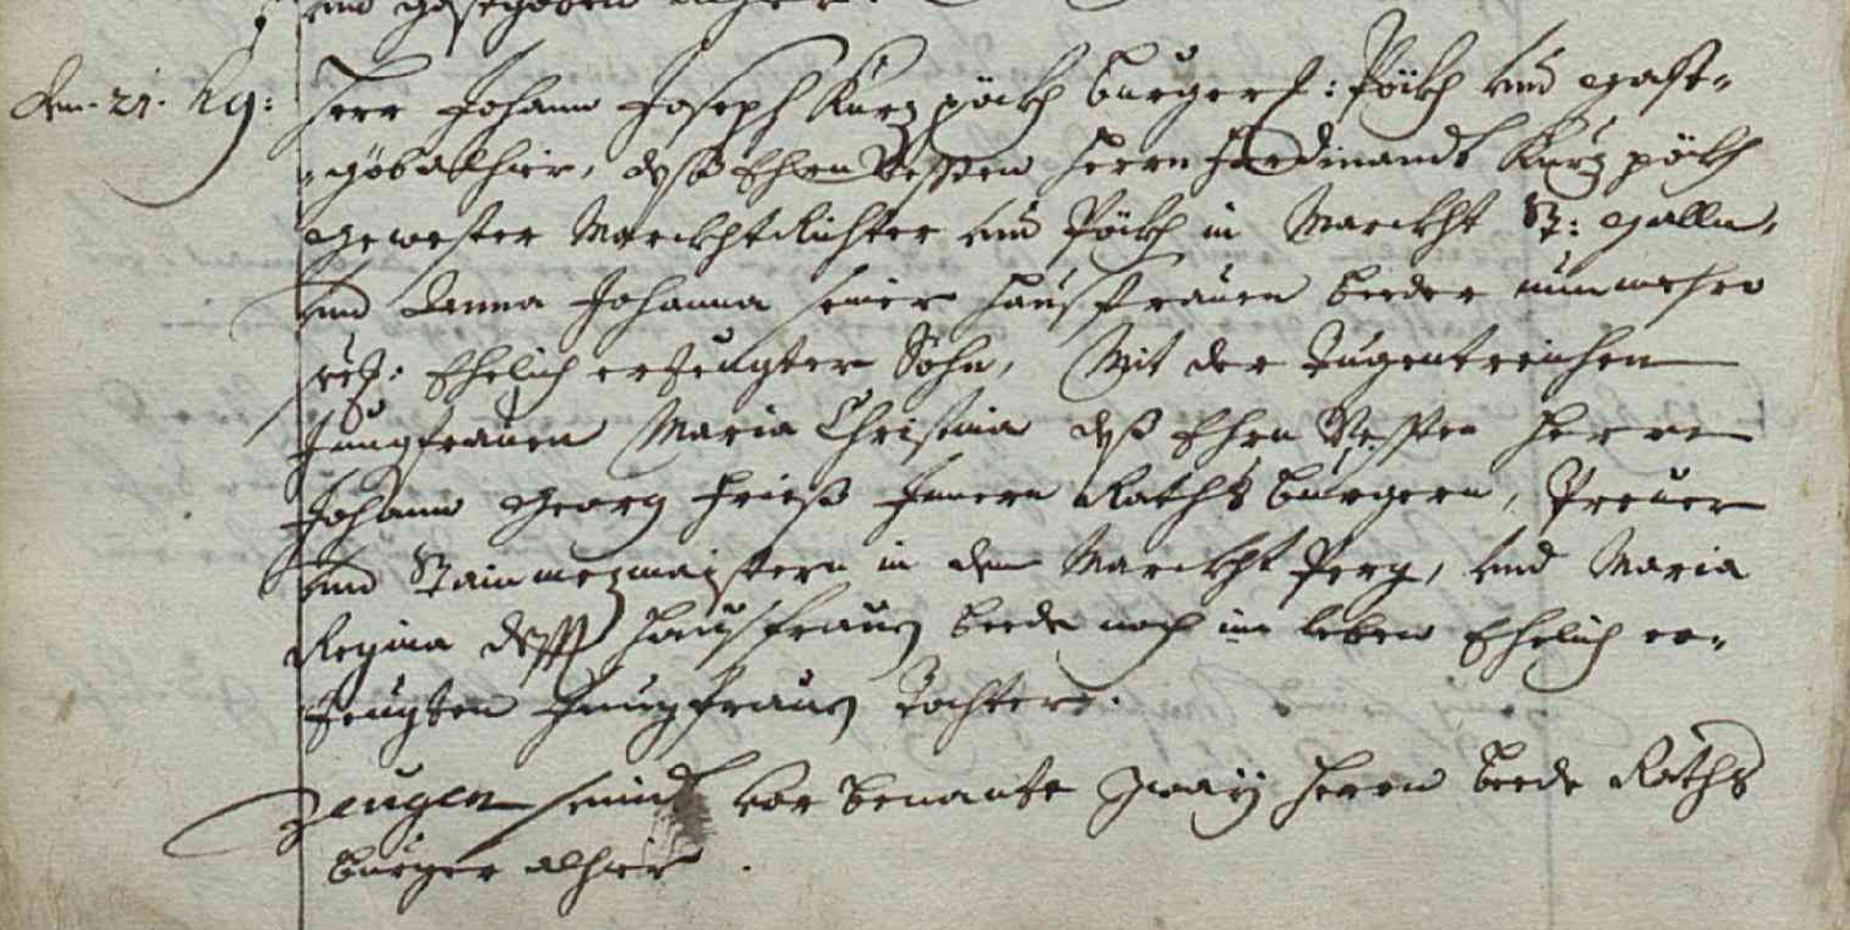 und gastgeben alhier.
den 21. hg: Herr Johann Joseph Kurzpökh burgerl: Pökh und Gast-
-göb alhier, deß Ehrn Vessten Herrn Ferdinandt Kurzpökh
gewester Marckhtrichter und Pökh in Marckht St: Gallen,
und Anna Johanna seiner Haußfrauen beeder nunmehro
seel: Ehelich erzeugter Sohn, Mit der Tugentreichen
Jungfrauen Maria Christina deß Ehrn Vessten Herrn
Johann Georg Frieß Innern Raths burgern, Preuer
und Stainmezmaistern in dem Marckht Perg, und Maria
Regina dessen Haußfrauen beede noch im leben Ehelich er-
zeugten Jungfrauen Tochter.
Zeugen seind vor benante zway Herrn beede Raths
burger alhier.